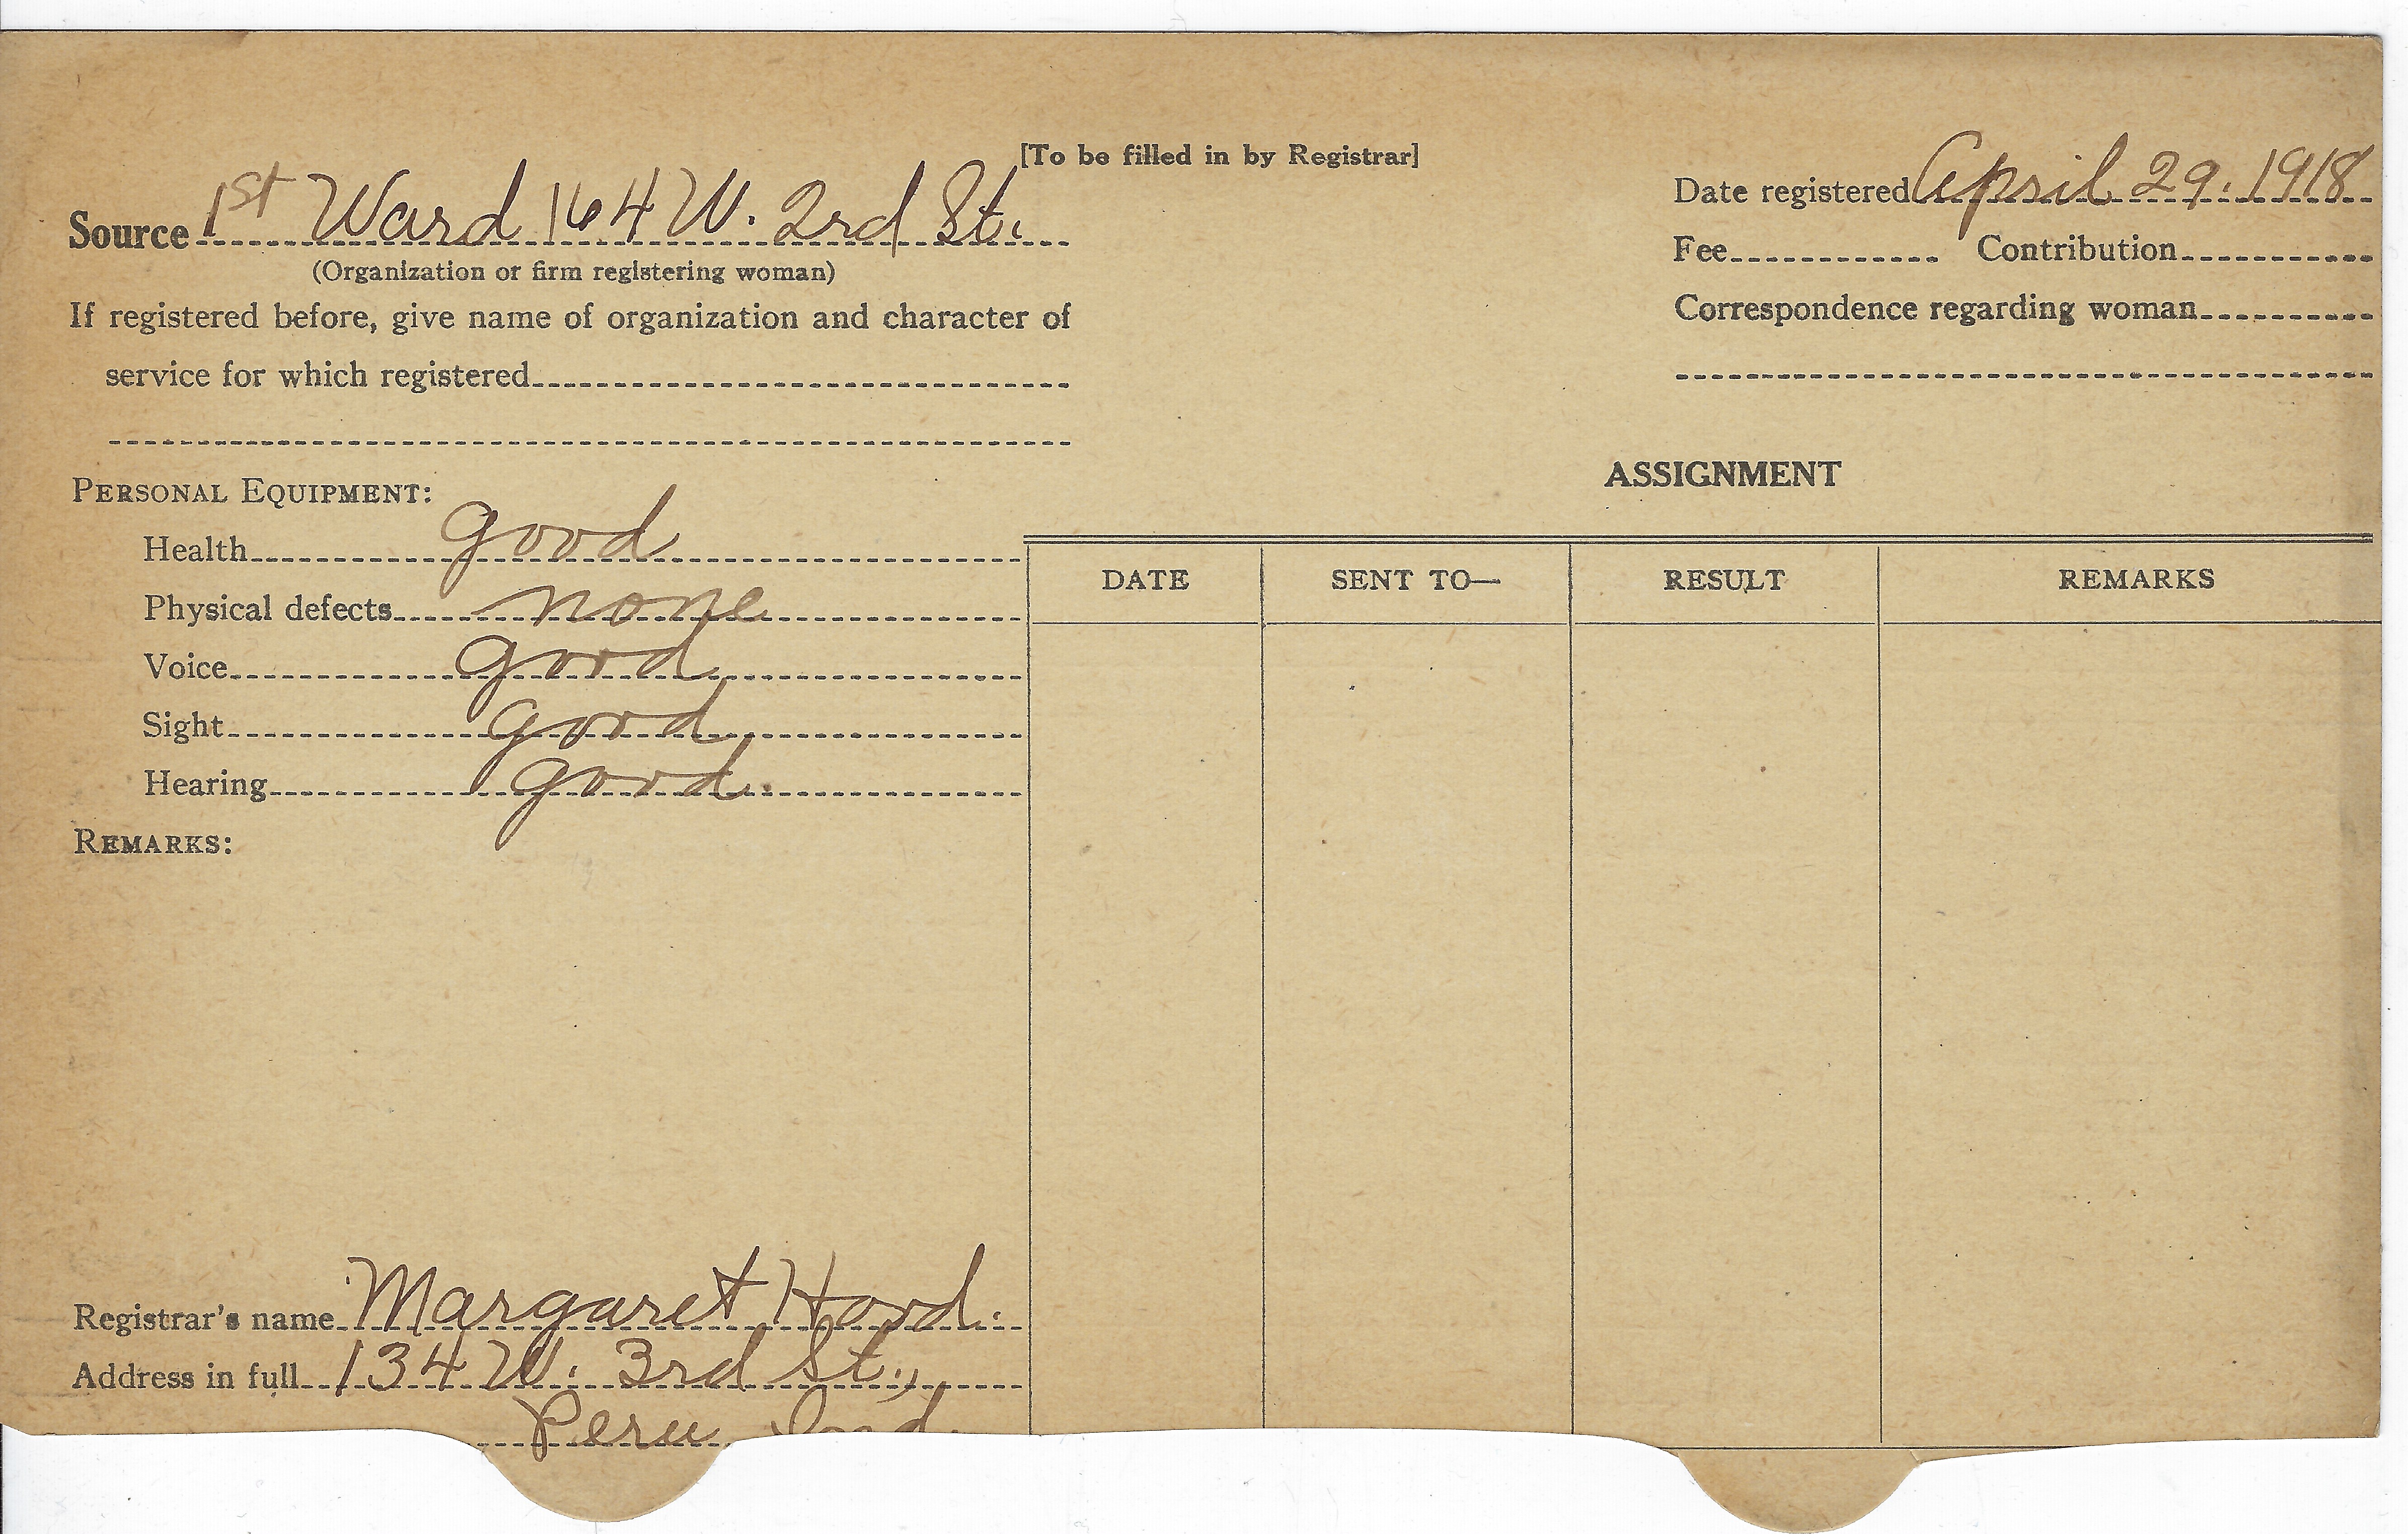 [To be filled in by Registrar]
Source 1st Ward 164 W. 2rd St.
(Organization or firm registering woman)
If registered before, give name of organization and character of
service for which registered
Date registered April 29. 1918
Fee Contribution
Correspondence regarding woman
PERSONAL EQUIPMENT:
Health good
Physical defects none
Voice good
Sight good
Hearing good.
REMARKS:
ASSIGNMENT
DATE SENT TO— RESULT REMARKS
Registrar's name Margaret Hood.
Address in full 134 W. 3rd St.,
Peru Ind.